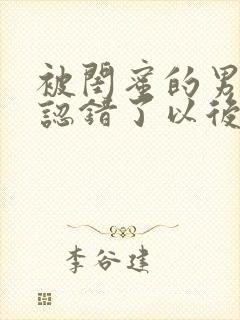 被閨蜜的男
認錯了以後
李谷建